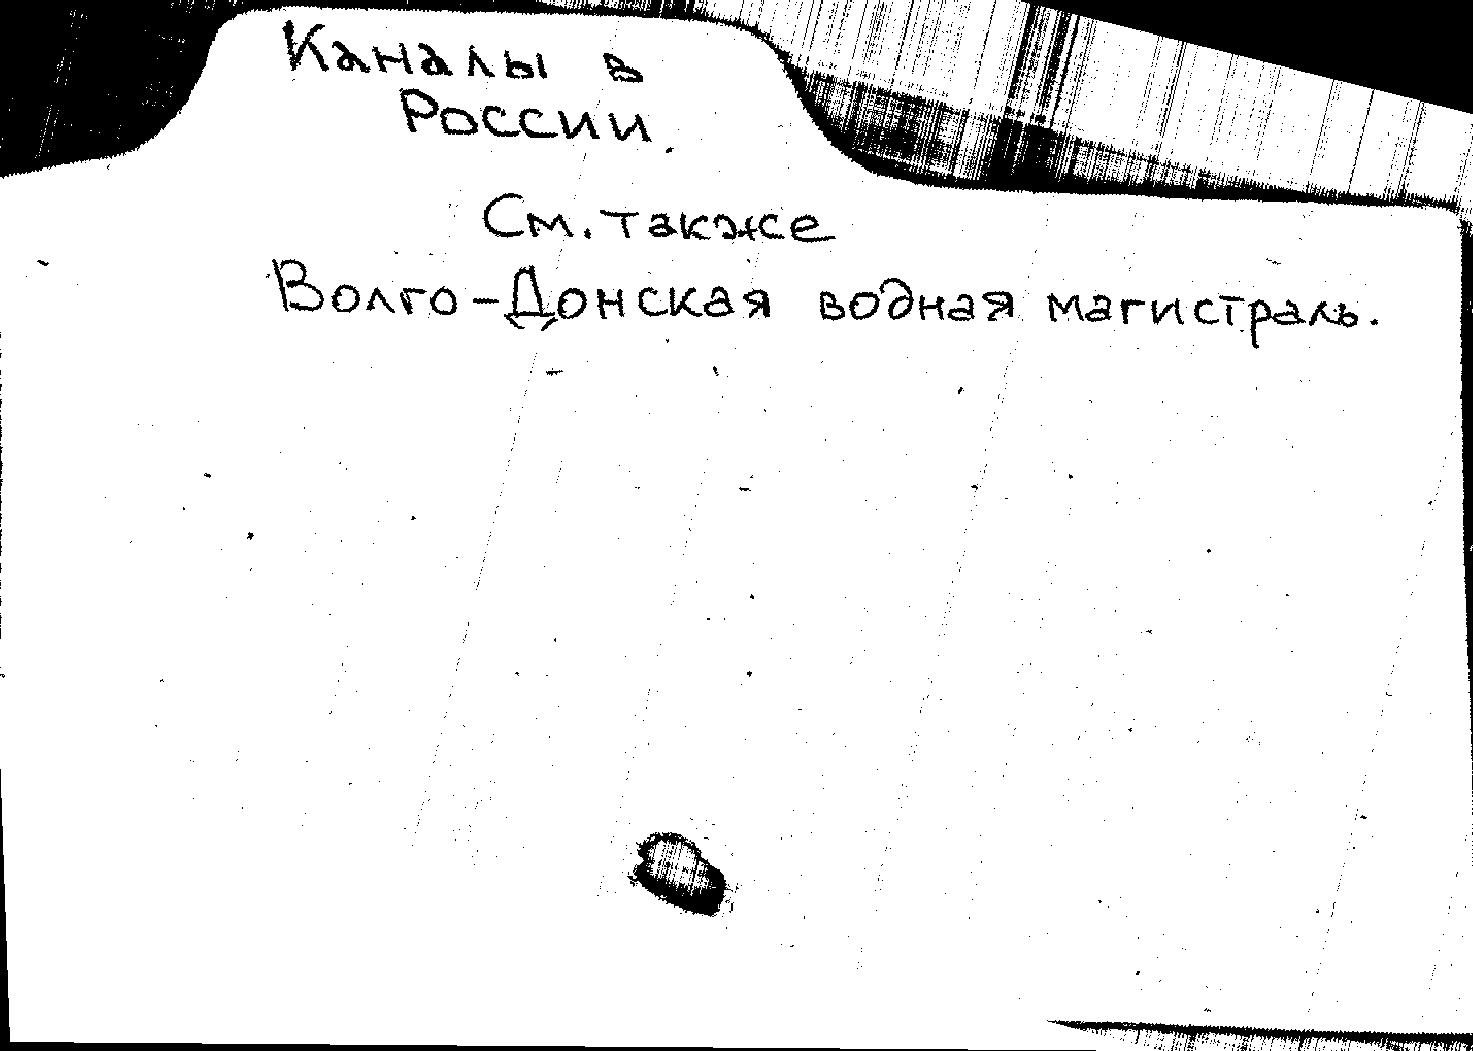 Каналы в
России.
См. также
Волго-Донская водная магистраль.